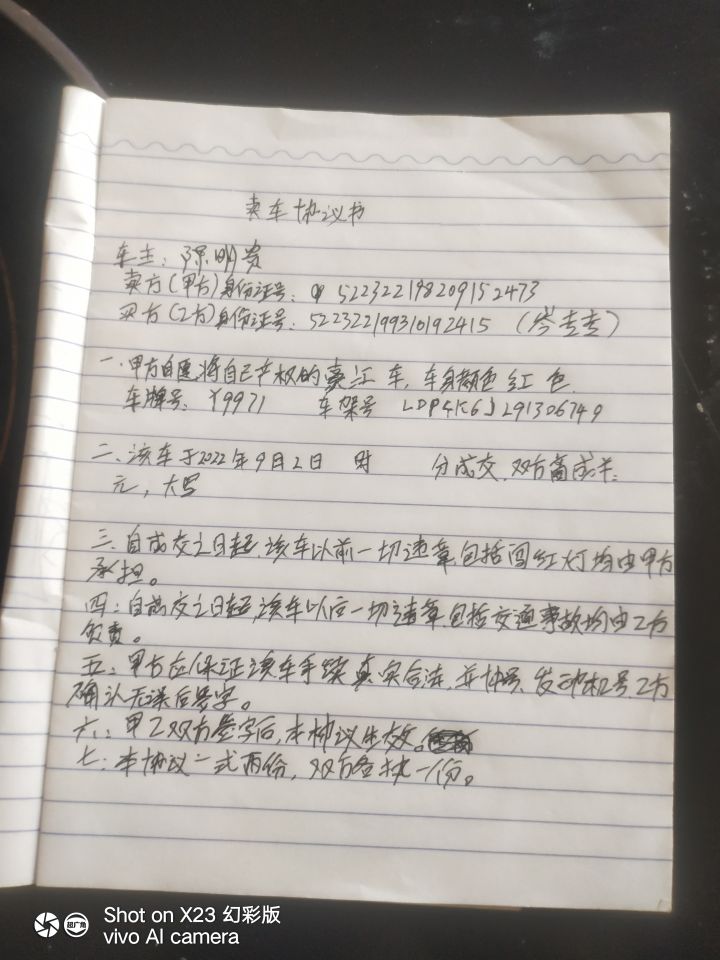 卖车协议书
车主：陈明贵
卖方(甲方)身份证号：522322198209152473
买方(乙方)身份证号：522322199310192415 (岑吉吉)
一.甲方自愿将自己产权的豪江车，车身颜色红色.
车牌号：Y9971 车架号 LDP4K6J291306749
二、该车于2022年9月2日 时 分成交.双方
元，大写
三、自成交之日起，该车以前一切违章包括闯红灯均由甲方
承担。
四：自成交之日起，该车以后一切违章包括交通事故均由乙方
负责。
五：甲方应保证该车手续真实合法，发动机号，乙方
确认无误后签字。
六：甲乙双方签字后，本协议生效。
七：本协议一式两份，双方各执一份。
Shot on X23 幻彩版
vivo AI camera